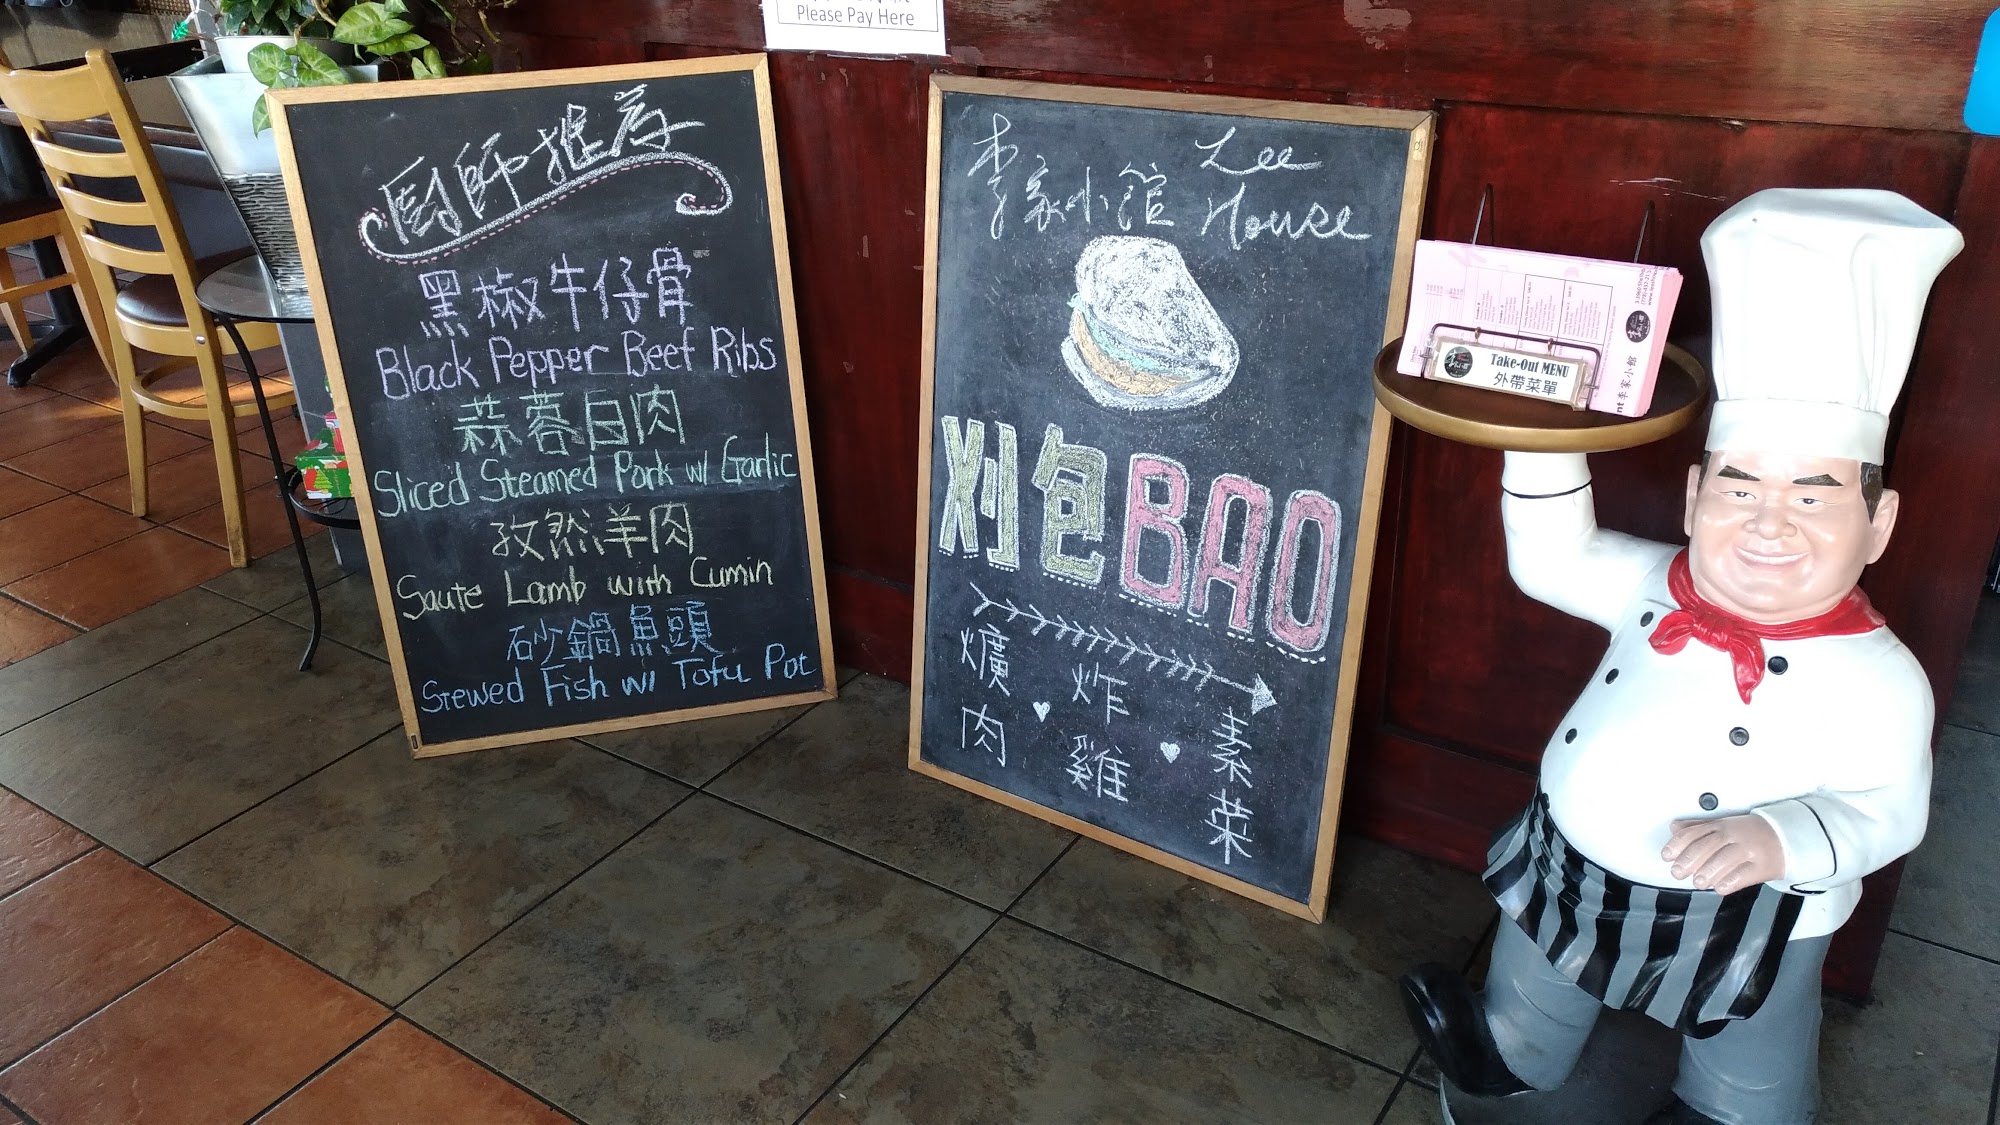 Please Pay Here
廚師推荐
黑椒牛仔骨
Black Pepper Beef Ribs
蒜蓉白肉
Sliced Steamed Pork w/ Garlic
孜然羊肉
Saute Lamb with Cumin
砂鍋魚頭
Stewed Fish w/ Tofu Pot
李家小館 Lee House
刈包 BAO
爌肉
炸雞
素菜
Take-Out MENU
外帶菜單
李家小館